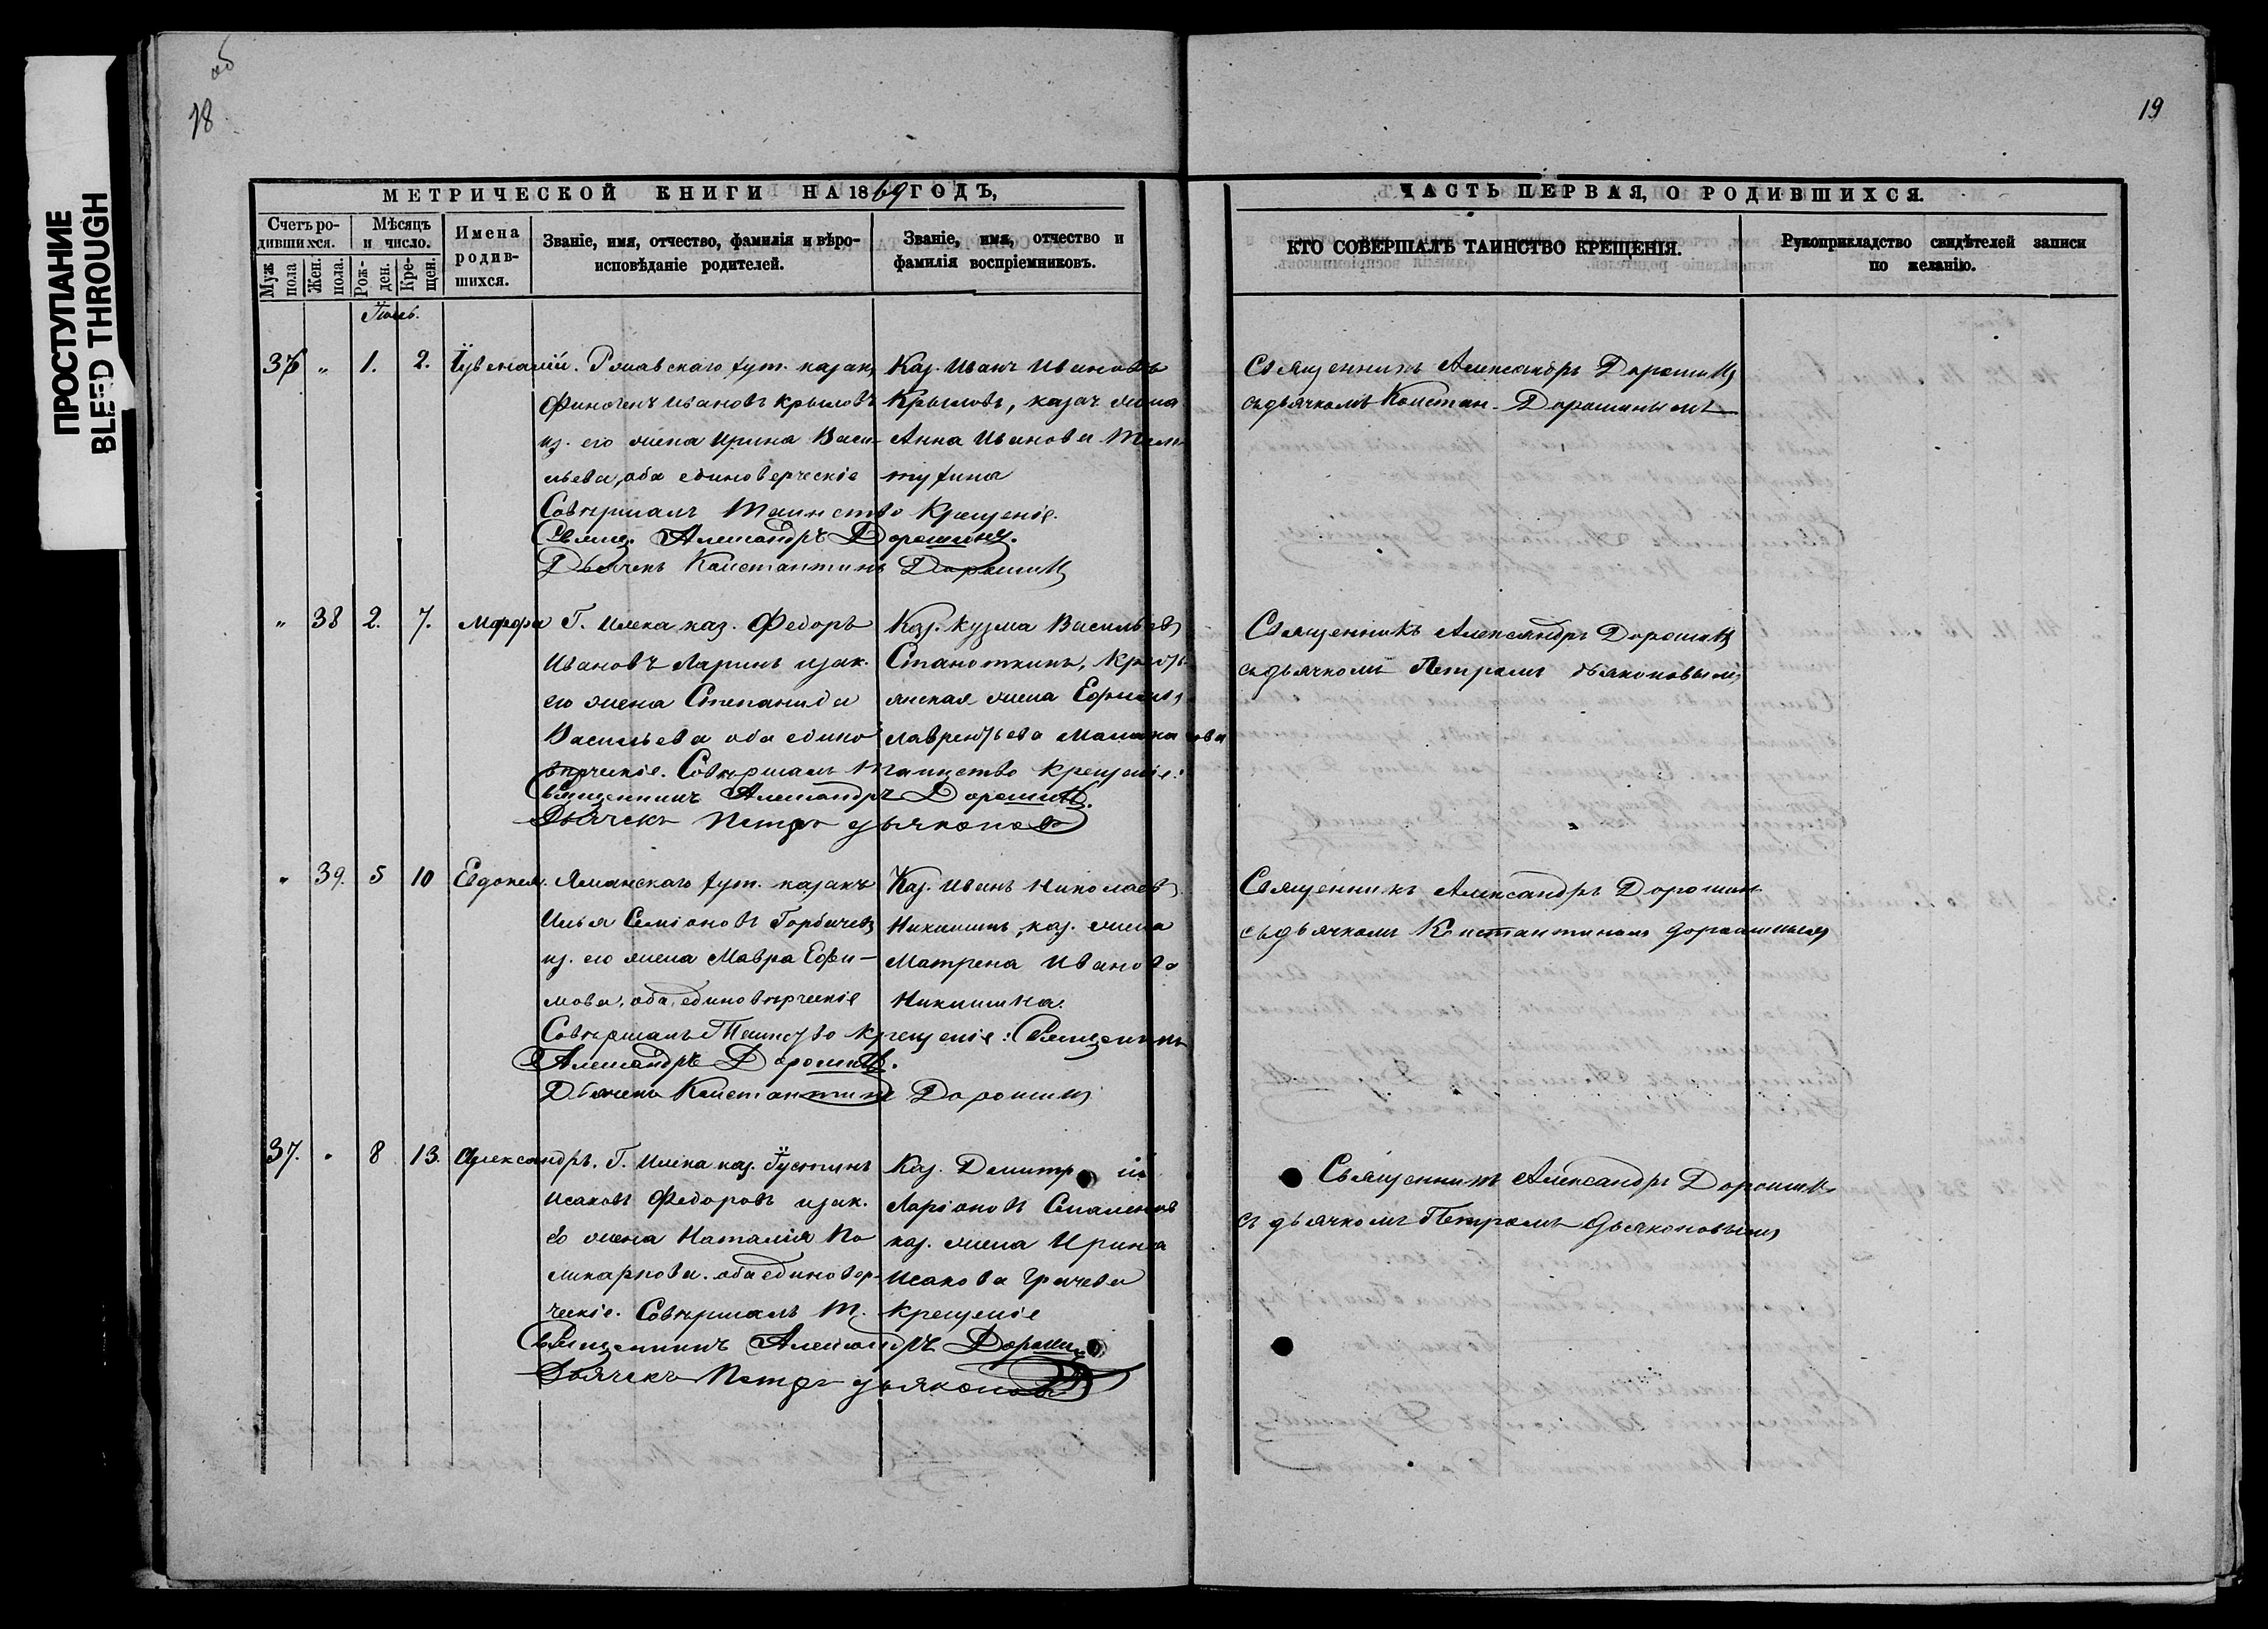 об
18
19
ПРОСТУПАНИЕ
BLEED THROUGH
МЕТРИЧЕСКОЙ КНИГИ НА 1869 ГОДЪ,
ЧАСТЬ ПЕРВАЯ, О РОДИВШИХСЯ.
Счетъ родившихся.
Муж пола
Жен. пола.
Мѣсяцъ и число.
Рожден.
Крещен.
Имена родившихся.
Званіе, имя, отчество, фамилія и вѣроисповѣданіе родителей.
Званіе, имя, отчество и фамилія воспріемниковъ.
КТО СОВЕРШАЛЪ ТАИНСТВО КРЕЩЕНІЯ.
Рукоприкладство свидѣтелей записи по желанію.
36 „ 1. 2. Іувеналій.
хут. казакъ
Финогенъ Ивановъ Крыловъ
из. его жена Ирина Васи-
льева, оба единоверческіе
Каз. Иванъ Ивановъ
Крыловъ, казач. жена
Анна Иванова
Совершалъ Таинство Крещенія.
Свящ. Александръ Дорошинъ.
Дьячекъ Константинъ Дорошинъ
Священникъ Александръ Дорошинъ
съ дьячкомъ Констан. Дорошинымъ
„ 38 2. 7. Марфа
Г. Илека каз. Федоръ
Ивановъ Ларинъ изак.
его жена Степанида
Васильева оба едино
верческіе. Совершалъ Таинство Крещеніе:
Каз. Кузма Васильевъ
Крестьянская жена
Лаврентьева
Священникъ Александръ Дорошинъ.
Дьячекъ Петръ Дьяконовъ
Священникъ Александръ Дорошинъ
съ дьячкомъ Петромъ Дьяконовымъ
„ 39. 5 10 Евдокея.
хут. казакъ
Илья Семіоновъ Горбачевъ
из. его жена Мавра Ефи-
мова, оба единоверческіе
Каз. Иванъ Николаевъ
Никишинъ, каз. жена
Матрена Иванова
Никишина.
Совершалъ Таинство Крещеніе: Священникъ
Александръ Дорошинъ.
Дьячекъ Константинъ Дорошинъ
Священникъ Александръ Дорошинъ
съ дьячкомъ Константиномъ Дорошинымъ
37. „ 8 13. Александръ.
Г. Илека каз. Іустинъ
Исаковъ Федоровъ изак.
Ео жена Наталія По
ликарпова. оба единовер-
ческіе. Совершалъ Т. Крещеніе
Каз. Димитрій
Ларіоновъ
каз. жена Ирина
Исакова Грачева
Священникъ Александръ Дорошинъ
Дьячекъ Петръ Дьяконовъ
Священникъ Александръ Дорошинъ
съ дьячкомъ Петромъ Дьяконовымъ